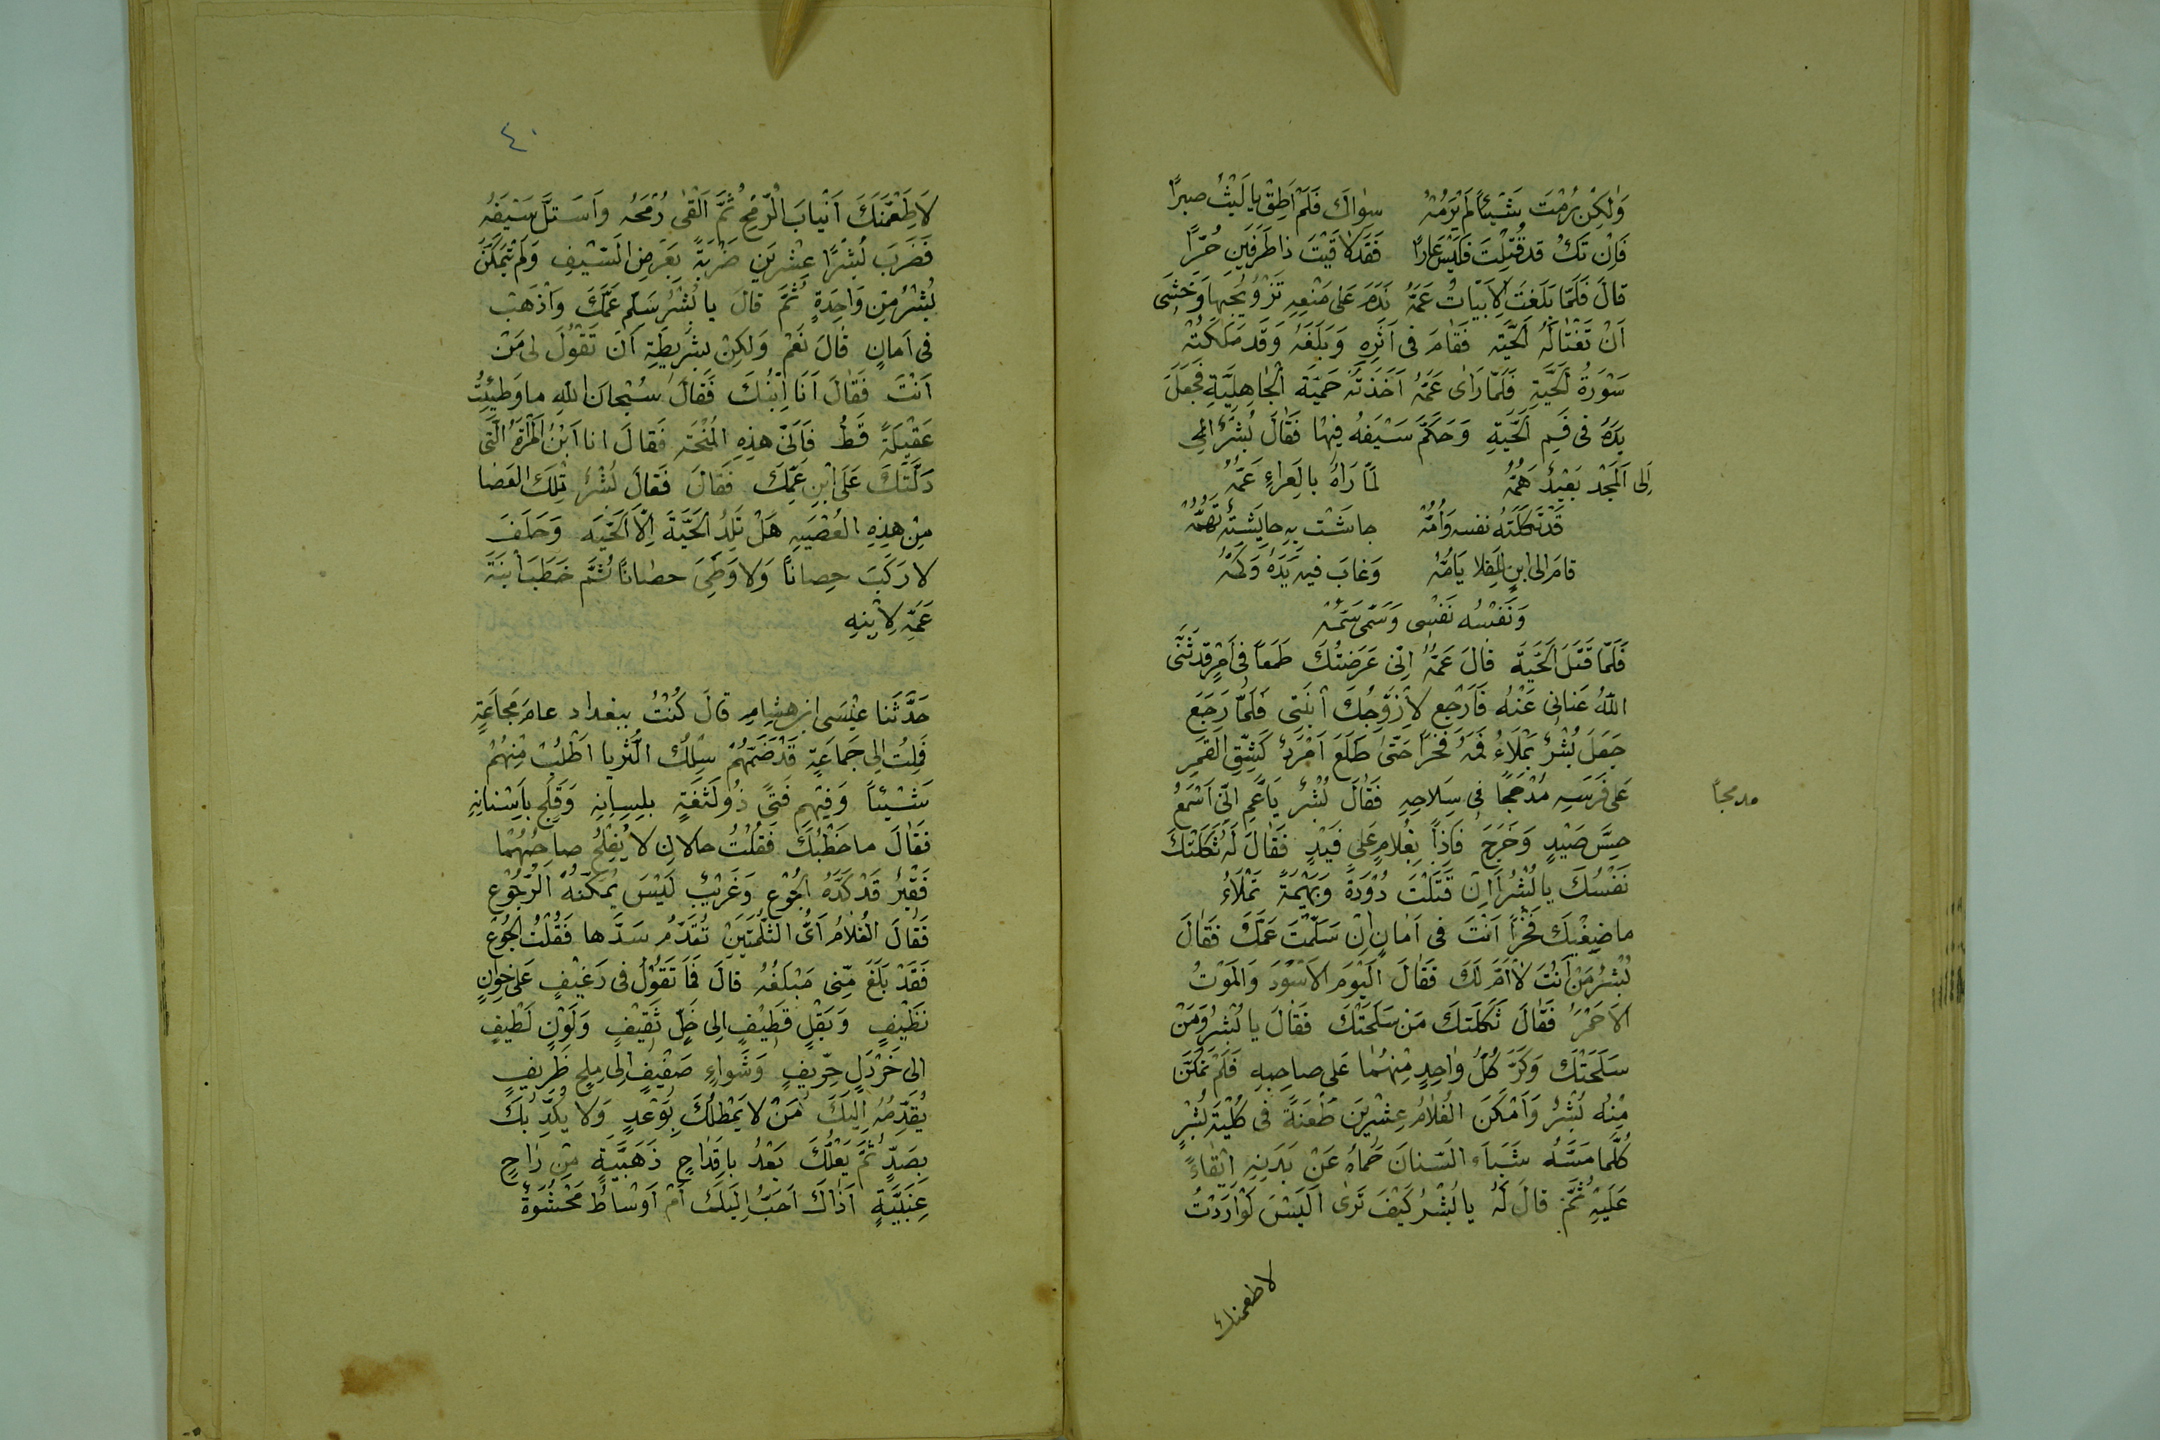 وَلٰكِنْ رُمْتَ شَيْئًا لَمْ يَرُمْهُ سِوَاكَ فَلَمْ اَطِقْ يا لَيْثُ صبرًا
فَاِنْ تَكُ قد قُتِلْتَ فَلَيْسَ عَارًا فَقَدْ لاقَيْتَ ذا طَرَفَيْنِ حُرًّا
قالَ فَلَمَّا بَلَغَتِ الاَبْيَاتُ عَمَّهُ نَدِمَ عَلى مَنْعِهِ تَزْوِيْجِها وَخَشِىَ
اَنْ تَغْتَالَهُ الحَيَّة فَقٰامَ فى اَثَرِهِ وَبَلَغَهُ وَقَد مَلَكَتْهُ
سَوْرَةُ الْحَيَّةِ فَلَمّا رَاٰى عَمَّهُ اَخَذَتْهُ حَمِيَّة الْجَاهِلِيَّةِ فَجَعَلَ
يَدَهُ فى فَمِ الْحَيَّةِ وَحَكَّمَ سَيْفَهُ فِيها فَقٰالَ بُشْرٌ
اِلى الْمَجْد بَعِيْدٌ هَمُّهُ لَمّا رَاهُ بالعَراءِ عَمُّهُ
قَدْ ثَكَلَتْهُ نفسه وَأُمُّهُ جاشَتْ بِهِ جايِشَة تَهُمُّهُ
قامَ الى ابنٍ لِلْفَلا يَامُّهُ وَغابَ فيهِ يَدُهُ وَكُمُّهُ
وَنَفْسُه نَفْسِى وَسَمِّى سَمُّهُ
فَلَمّا قَتَلَ الْحَيَّةَ قالَ عَمُّهُ اِنّى عَرَضْتُكَ طَمَعاً فى اَمْرٍ قد ثَنَى
اللّٰهُ عَنانِى عَنْهُ فَارْجِع لاُزَوِّجُكَ اْبْنَتِى فَلَمّا رَجَعَ
جَعَلَ بُشْرٌ يَمْلَاءُ فَمَهُ فَخْرًا حَتّى طَلَعَ اَمْرَدُ كَشِقِّ القَمَرِ
عَلى فَرَسِهِ مُدْمَجًا فى سِلاحِهِ فَقٰالَ بُشْرٌ يَا عَمِ اِنّى اَسْمَعُ
مدمجاً
حِسَّ صَيْدٍ وَخَرَجَ فَاِذاً بِغُلامٍ عَلى قَيْدٍ فَقٰالَ لَهُ ثَكَلَتْكَ
نَفْسُكَ يا بُشْرُ اَاِن قَتَلْتَ دُوْدَةً وَبَهِيْمَةً تَمْلَاءُ
ما ضِيْغَيْكَ فَخْرًا اَنْتَ فى اَمانٍ اِن سَلَّمْتَ عَمَّكَ فَقٰالَ
بُشْرٌ مَنْ اَنْتَ لا اُمَّ لَكَ فَقٰالَ اليَوْمَ الاَسْوَدَ وَالمَوْتُ
الاَحْمَرَ فَقٰالَ ثَكَلَتكَ مَن سَلَحَتْكَ فَقٰالَ يا بُشْرُ وَمَنْ
سَلَحَتْكَ وَكَرَّ كُلُّ وٰاحِدٍ مِنْهُمٰا عَلى صاحِبِهِ فَلَمْ يَمْكَنَّ
مِنْه بُشْرٌ وَاَمْكَنَ الغُلٰامُ عِشْرِينَ طَعْنَةً فى كُلْيَة بُشْرٍ
كُلَّما مَسَّهُ شَبَاء السّنانَ حَمٰاهُ عَنْ بَدَنِهِ اِبْقاءً
عَلَيْهِ ثُمَّ قالَ لَهُ يا بُشْرُ كَيْفَ تَرٰى اَلَيْسَ لَوْ اَرَدْتُ
لاطعمنك
٤٠
لاَطعَمْتُكَ اَنْيابَ الرّمْحِ ثُمَّ اَلْقٰى رُمْحَهُ وَاسْتَلَّ سَيْفَهُ
فَضَرَبَ بُشْرًا عِشْرِيْنَ ضَرْبَةً بِعَرْضِ السّيْفِ وَلَمْ يَتَمَكَّنْ
بُشْرٌ مِن وَاحِدَةٍ ثُمَّ قالَ يا بُشْرُ سَلِّم عَمَّكَ وَاذْهَبْ
فى اَمانٍ قٰالَ نَعَمْ وَلكِنْ بِشَرِيطَةِ اَن تَقُوْلَ لى مَنْ
اَنْتَ فَقٰالَ اَنَا اِبْنُكَ فَقٰالَ سُبْحانَ اللّٰهِ ما وَطِئْتُ
عَقِيْلَةً قَطُّ فَاَنّى هذِهِ المِنْحَة فَقالَ انا اَبْنُ المَرْأةُ الّتى
دَلَّتْكَ عَلى ابْنِ عَمِّكَ فَقٰالَ فَقٰالَ بُشْرٌ تِلْكَ العَصَا
مِنْ هذِهِ العُصَيَّه هَلْ تَلِدُ الْحَيَّةَ اِلّا الحَيَّه وَحَلَفَ
لا رَكَبَ حِصانًا وَلا وَطِئَ حصانًا ثُمَّ خَطَبَ ابنَةَ
عَمّهِ لاِبْنِهِ
حَدَّثَنا عِيْسَى ابن هشامِ قالَ كُنْتُ ببغداد عامَ مَجاعَةٍ
فَمِلْتُ الى جَماعَةٍ قَدْ ضَمَّهُمْ سِلْكُ الثّريا اَطْلُبُ مِنْهُمْ
شَيْئًا وَفِيْهِم فَتًى ذُو لَثْغَةٍ بلِسانِهِ وَفَلَجٍ باَسْنانِهِ
فَقٰالَ ما خَطْبُكَ فَقُلْتُ حالانِ لا يُفْلِحُ صاحِبُهُمٰا
فَقْيرٌ قَدْ كَدَّهُ الْجُوْع وَغَرِيْبٌ لَيْسَ يُمَكِّنُهُ الرُّجُوْعِ
فَقٰالَ الغُلامُ اَىُّ الثّلْمَتَيْنِ تُقَدِّمُ سَدَّها فَقُلْتُ الجُوْعُ
فَقَدْ بَلَغَ مِنّى مَبْلَغُهُ قالَ فَمَا تَقُوْلُ فى رَغِيْفٍ عَلى خِوٰانٍ
نَظِيْفٍ وَبَقْلٍ قَطِيْفٍ الى خَلٍّ ثَقِيْفٍ وَلَوْنٍ لَطِيْفٍ
الى خَرْدَلٍ حِرّيفٍ وَشَوٰاءٍ صَفِيْفٍ الى مِلْحٍ ظَرِيفٍ
يُقَدِّمُهُ اِلَيْكَ مَنْ لا يَمْطلُكَ بِوَعْدٍ وَلا يُكَدِّبُكَ
بِصَدٍّ ثُمَّ يَعُلُّكَ بَعْدُ باقِداحٍ ذَهَبِيَّةٍ مِنْ رٰاحٍ
عِنَبِيَّةٍ اَذٰاكَ اَحَبُّ اِلَيكَ اَمْ اَوْساطٌ مَحْشُوَةٌ